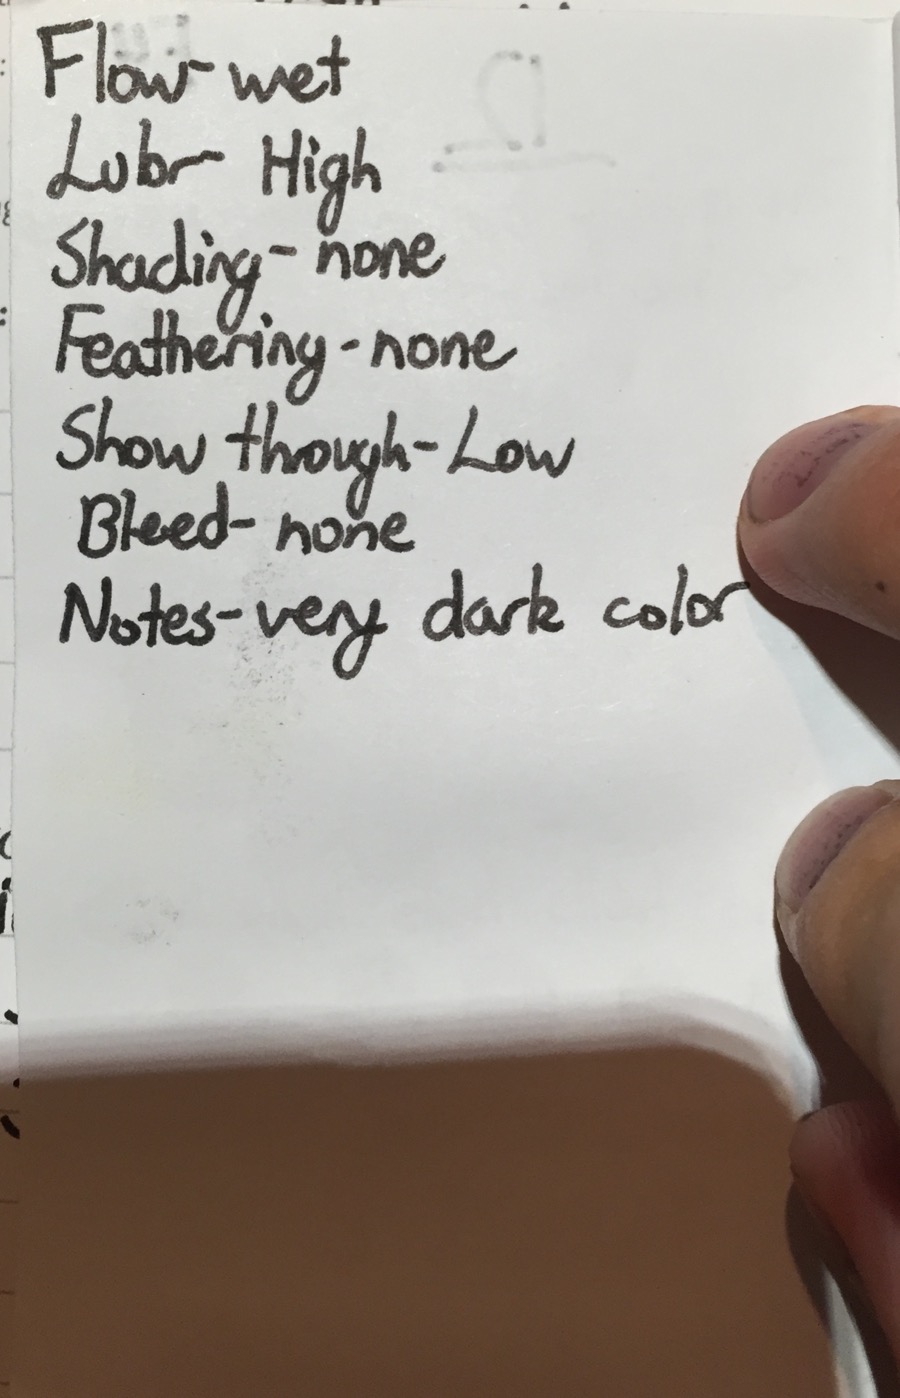 Flow- wet
Lubr- High
Shading- none
Feathering- none
Show through- Low
Bleed- none
Notes- very dark color